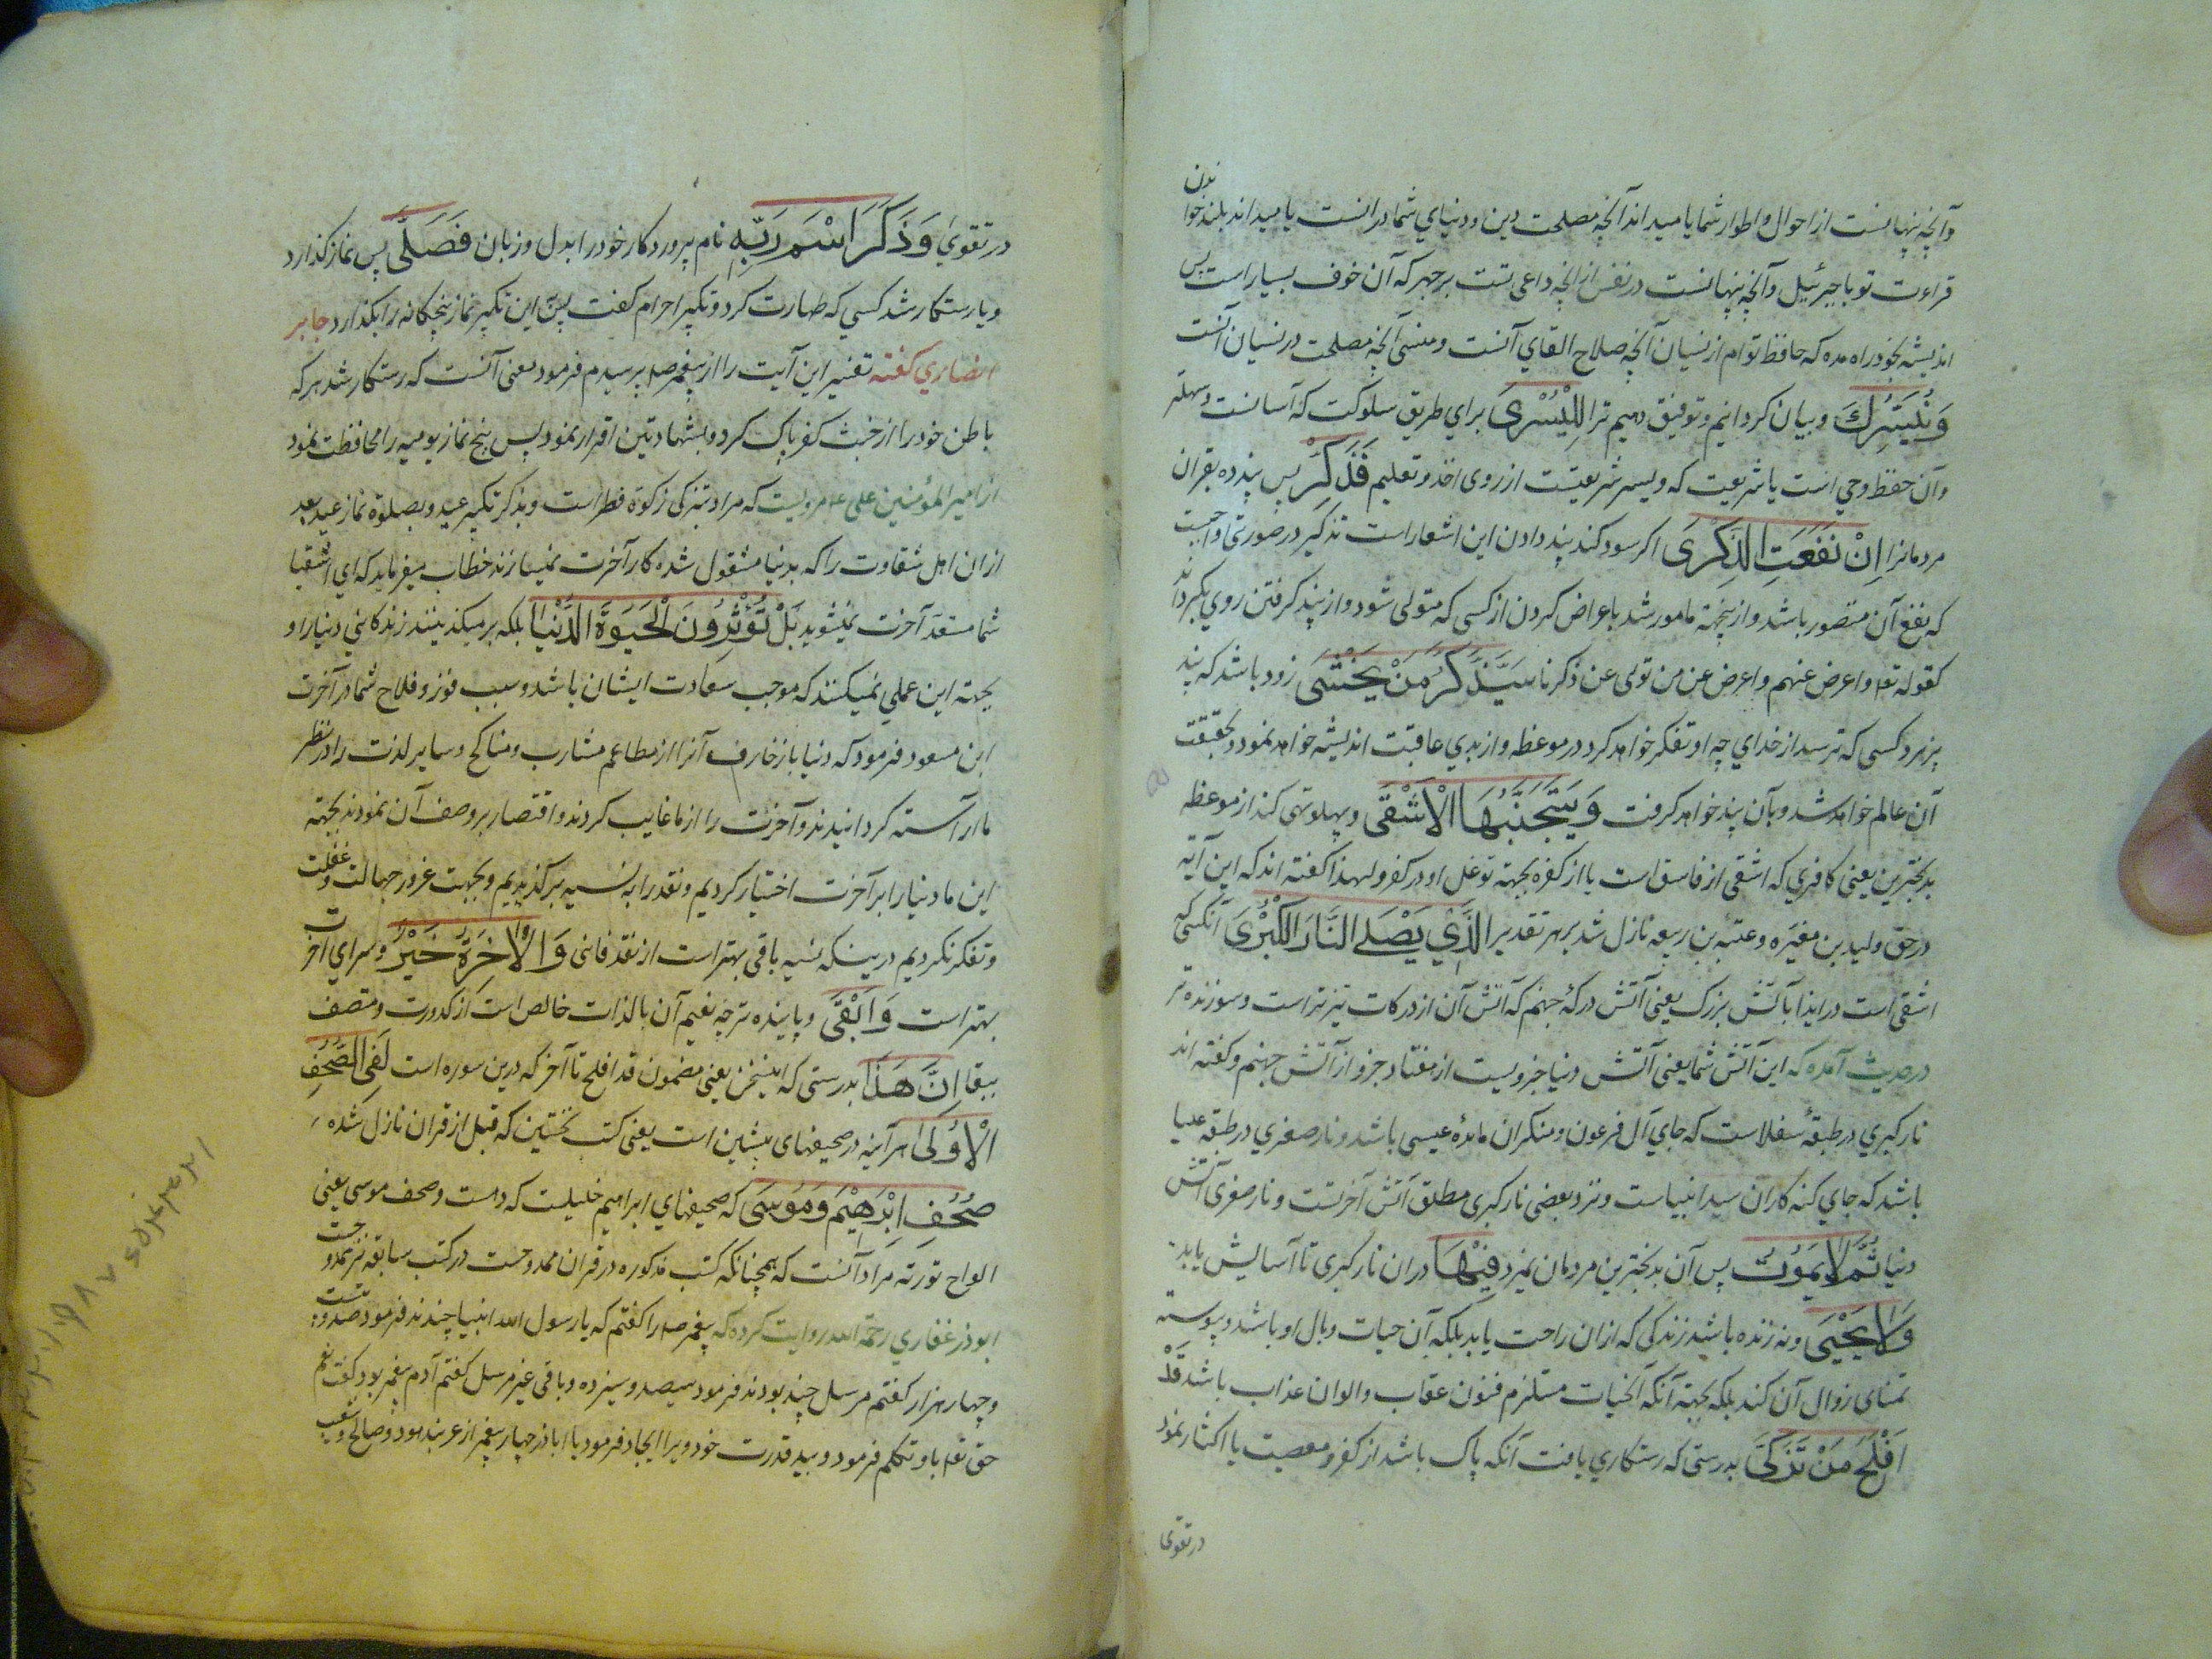 وآنچه پنهانست از احوال و اطوار شما یا میداند آنچه مصلحت دین و دنیای شما درانست یا میداند بلند خوا
ندن
قراءت تو با جبرئیل وآنچه پنهانست در نفس از آنچه داعی تست بر جهر که آن خوف بسیار است پس
اندیشه بخود راه مده که حافظ توام از نسیان آنچه صلاح القای آنست و منسی آنچه مصلحت در نسیان آنست
وَنُيَسِّرُكَ و بیان کردانیم و توفیق دهیم ترا لِلْيُسْرىَ برای طریق سلوکت که آسانست و سهلتر
وآن حفظ وحی است یا شریعت که ویسر شریعتیست از روی اخذ و تعلیم فَذَكِّرْ پس پند ده بقران
مردمانرا اِنْ نَفَعَتِ الذِّكْرىَ اکر سود کند پند دادن این اشعار است تذکیر در صورتی واجبست
که نفع آن متصور باشد و از ینجهة مامور شد باعراض کردن از کسی که متولی شود و از پند کرفتن روی بکرداند
کقوله تعا واعرض عنهم و اعرض عن من تولی عن ذکرنا سَيَذَّكَّرُ مَنْ يَخْشىَ زود باشد که پند
پزیرد کسی که ترسد از خدای چه او تفکر خواهد کرد در موعظه و از بدی عاقبت اندیشه خواهد نمود و بحقیقت
آن عالم خواهد شد و بآن پند خواهد کرفت وَيَتَجَنَّبُهَا الْاَشْقَى و پهلو تهی کند از موعظه
بدبخترین یعنی کافری که اشقی از فاسق است یا از کفره بجهته توغل او در کفر و لهذا کفته اند که این آیه
در حق ولید بن مغیره و عتبه بن ربیعه نازل شد بر هر تقدیر الَّذِي يَصْلَى النَّارَ الْكُبْرىَ آنکسی که
اشقی است در اید بآتش بزرک یعنی آتش درکهٔ جهنم که آتش آن از درکات تیزتر است و سوزنده تر
در حدیث آمده که این آتش شما یعنی آتش دنیا جزویست از هفتاد جزو از آتش جهنم و کفته اند
نار کبری در طبقهٔ سفلاست که جای آل فرعون و منکران مایدهٔ عیسی باشد و نار صغری در طبقه علیا
باشد که جای کنه کاران سید انبیاست و نزد بعضی نار کبری مطلق آتش آخرتست و نار صغری آتش
دنیا ثُمَّ لَا يَمُوتُ پس آن بدبخترین مردمان نمیرد فِيْهَا دران نار کبری تا آسایش یابد
وَلَا يَحْيىَ و نه زنده باشد زندکی که ازان راحت یابد بلکه آن حیات وبال او باشد و پیوسته
تمنای زوال آن کند بلکه بجهته آنکه آنحیات مستلزم فنون عقاب و الوان عذاب باشد قَدْ
اَفْلَحَ مَنْ تَزَكّىَ بدرستی که رستکاری یافت آنکه پاک باشد از کفر و معصیت یا اکثار نمود
در تقوی
در تقوی وَذَكَرَ اسْمَ رَبِّهِ نام پروردکار خود را بدل و زبان فَصَلّىَ پس نماز کذارد
و یا رستکار شد کسی که طهارت کرد و تکبیر احرام کفت پس این تکبیر نماز پنجکانه را بکذارد جابر
انصاری کفته تفسیر این آیت را از پیغمبر ص پرسیدم فرمود یعنی آنست که رستکار شد هر که
باطن خود را از خبث کفر پاک کرد و بشهادتین اقرار نمود پس پنج نماز یومیه را محافظت نمود
از امیرالمؤمنین علی ع مرویست که مراد بتزکی زکوة فطر است و بذکر تکبیر عید و بصلوة نماز عید بعد
ازان اهل شقاوت را که بدنیا مشغول شده کار آخرت نمیسازند خطاب میفرماید که ای اشقیا
شما مستعد آخرت نمیشوید بَلْ تُؤْثِرُونَ الْحَيٰوةَ الدُّنْيَا بلکه بر میکذینند زندکانی دنیا را و
بجهته این عملی نمیکنند که موجب سعادت ایشان باشد و سبب فوز و فلاح شما در آخرت
ابن مسعود فرمود که دنیا با زخارف آنرا از مطاعم مشارب و مناکح و سایر لذت را در نظر
ما آراسته کردانیدند و آخرت را از ما غایب کردند و اقتصار بر وصف آن نمودند بجهته
این ما دنیا را بر آخرت اختیار کردیم و نقد را به نسیه برکذیدیم و بجهت غرور جهالت و غفلت
و تفکر نکردیم درینکه نسیه باقی بهتر است از نقد فانی وَالْاٰخِرَةُ خَيْرٌ و سرای آخرت
بهتر است وَاَبْقىَ و پاینده تر چه نعیم آن بالذات خالص است از کدورت و متصف
ببقا اِنَّ هٰذَا بدرستی که اینسخن یعنی مضمون قد افلح تا آخر که درین سوره است لَفِي الصُّحُفِ
الْاُولىَ هر آینه در صحیفهای پیشین است یعنی کتب نخستین که قبل از قران نازل شده
صُحُفِ اِبْرٰهِيْمَ وَمُوسىَ که صحیفهای ابراهیم خلیلست که ده است و صحف موسی یعنی
الواح توریة مراد آنست که همچنانکه کتب مذکوره در قران ممدوحست در کتب سابقه نیز ممدوحست
ابوذر غفاری رحمة الله روایت کرده که پیغمبر ص را کفتم که یا رسول الله انبیا چندند فرمود صد و بیست
و چهار هزار کفتم مرسل چند بودند فرمود سیصد و سیزده و باقی غیر مرسل کفتم آدم پیغمبر بود کفت نعم
حق تعا با و تکلم فرمود و بید قدرت خود ویرا ایجاد فرمود یا اباذر چهار پیغمبر از عرب بود هود و صالح و شعیب